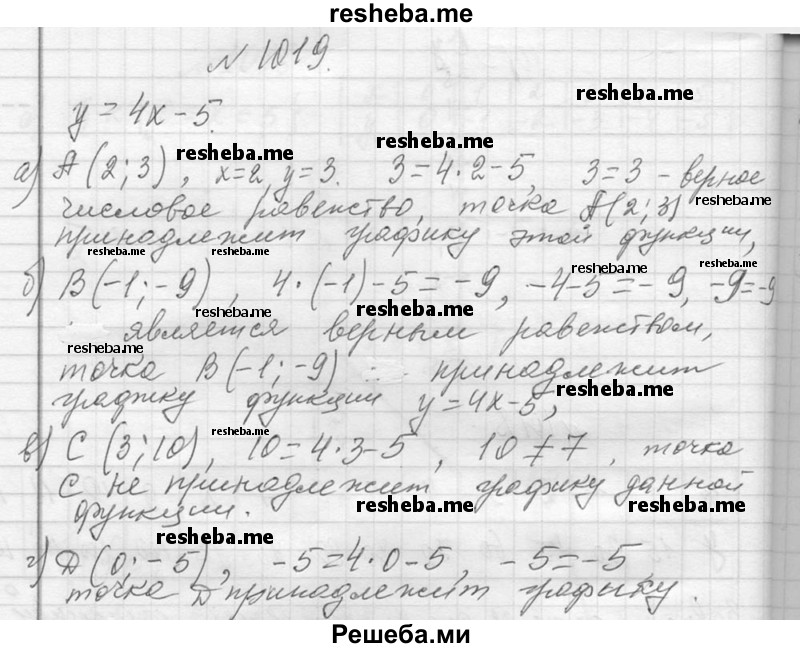 resheba.me
№ 1019.
resheba.me
y = 4x - 5.
resheba.me resheba.me
а) A (2; 3), x=2, y=3. 3=4·2-5, 3=3 - верное
числовое равенство, точка A(2; 3) resheba.me
принадлежит графику этой функции,
resheba.me resheba.me resheba.me resheba.me
б) B(-1; -9), 4·(-1)-5=-9, -4-5=-9, -9=-9
resheba.me resheba.me
является верным равенством,
resheba.me
точка B(-1; -9) принадлежит
графику функции y=4x-5, resheba.me
в) C (3; 10), resheba.me 10=4·3-5, 10≠7, точка
C не принадлежит графику данной
функции. resheba.me resheba.me
resheba.me
г) D (0; -5), -5=4·0-5, -5=-5,
точка D принадлежит графыку.
Решеба.ми